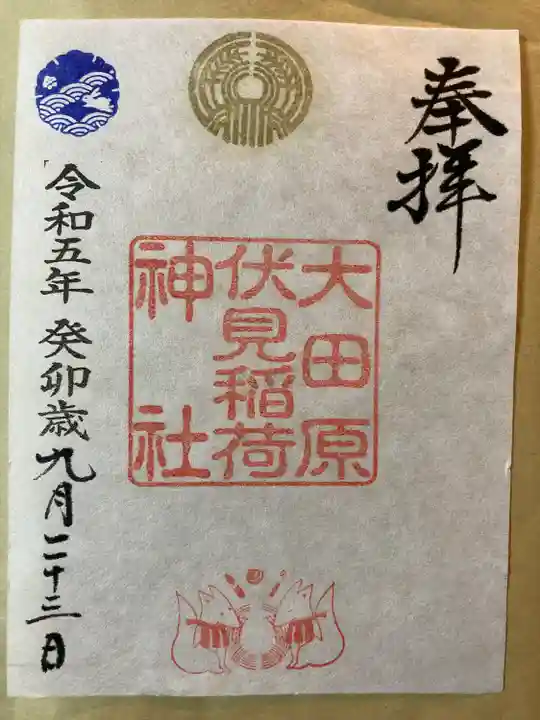 奉拝
大田原
伏見稲荷
神社
令和五年 癸卯歳九月二十三日